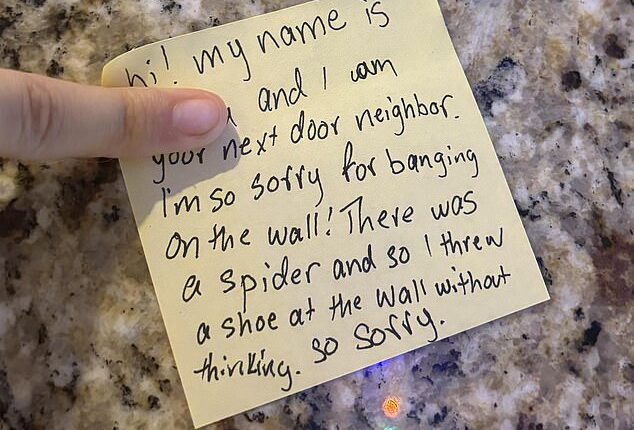 hi! my name is
and I am
your next door neighbor.
I'm so sorry for banging
on the wall! There was
a spider and so I threw
a shoe at the wall without
thinking. so sorry.